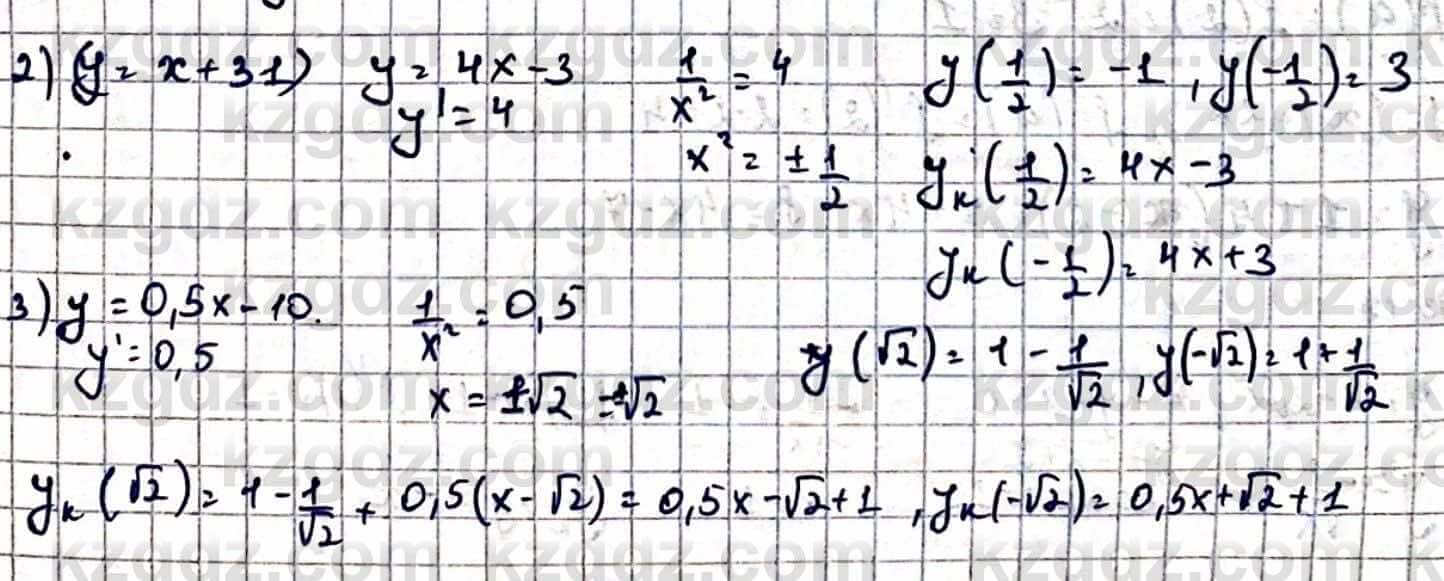 2) (y = x + 31) y = 4x - 3 1/x² = 4 y(1/2) = -1, y(-1/2) = 3
y' = 4 x² = ± 1/2 yк(1/2) = 4x - 3
yк(-1/2) = 4x + 3
3) y = 0,5x - 10. 1/x² = 0,5
y' = 0,5 y(√2) = 1 - 1/√2, y(-√2) = 1 + 1/√2
x = ±√2 = ±√2
yк(√2) = 1 - 1/√2 + 0,5(x - √2) = 0,5x - √2 + 1, yк(-√2) = 0,5x + √2 + 1
kzgdz.com